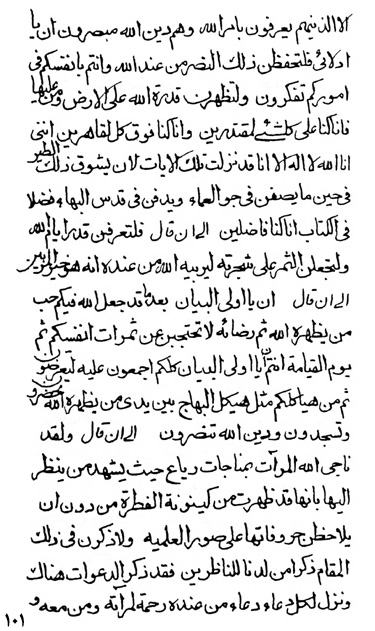 الا الذينهم يعرفون بامر الله وهم دين الله مبصرون ان يا
ادلائى فلتحفظن ذلك النصر من عند الله وانتم بانفسكم فى
اموركم تتفكرون ولتظهرن قدرة الله على الارض ومن عليها
فانا كنا على كلشئ لمقتدرين وانا كنا فوق كل لقاهرين اننى
انا الله لا اله الا انا قد نزلت تلك الايات لان يشوق ذلك الطير
فى حين ما يصفن فى جو العماء ويدفن فى قدس البهاء فضلا
فى الكتاب انا كنا فاضلين الى ان قال فلتعرفن قدر ايام الله
ولتجعلن الثمر على شجرته ليربيه الله من عنده انه هو خير
الى ان قال ان يا اولى البيان بعد ما قد جعل الله فيكم حب
من يظهره الله ثم رضائه لا تحتجبن عن ثمرات انفسكم ثم
يوم القيامة انتم ان يا اولى البيان كلكم اجمعون عليه لتعرضون
ثم من هياكلكم مثل هيكل البهاج بين يدى من يظهره الله
وتسجدون ودين الله تنصرون الى ان قال ولقد
ناجى الله المرآت بمناجات رباع حيث يشهد من ينظر
اليها بانها قد ظهرت من كينونة الفطرة من دون ان
يلاحظن حروفاتها على صور العلميه ولا ذكرن فى ذلك
المقام ذكرا من لدنا للناظرين فقد ذكر الدعوات هناك
ونزل لكل دعاء دعاء من عنده رحمة لمرآته ومن معه و
١٠١